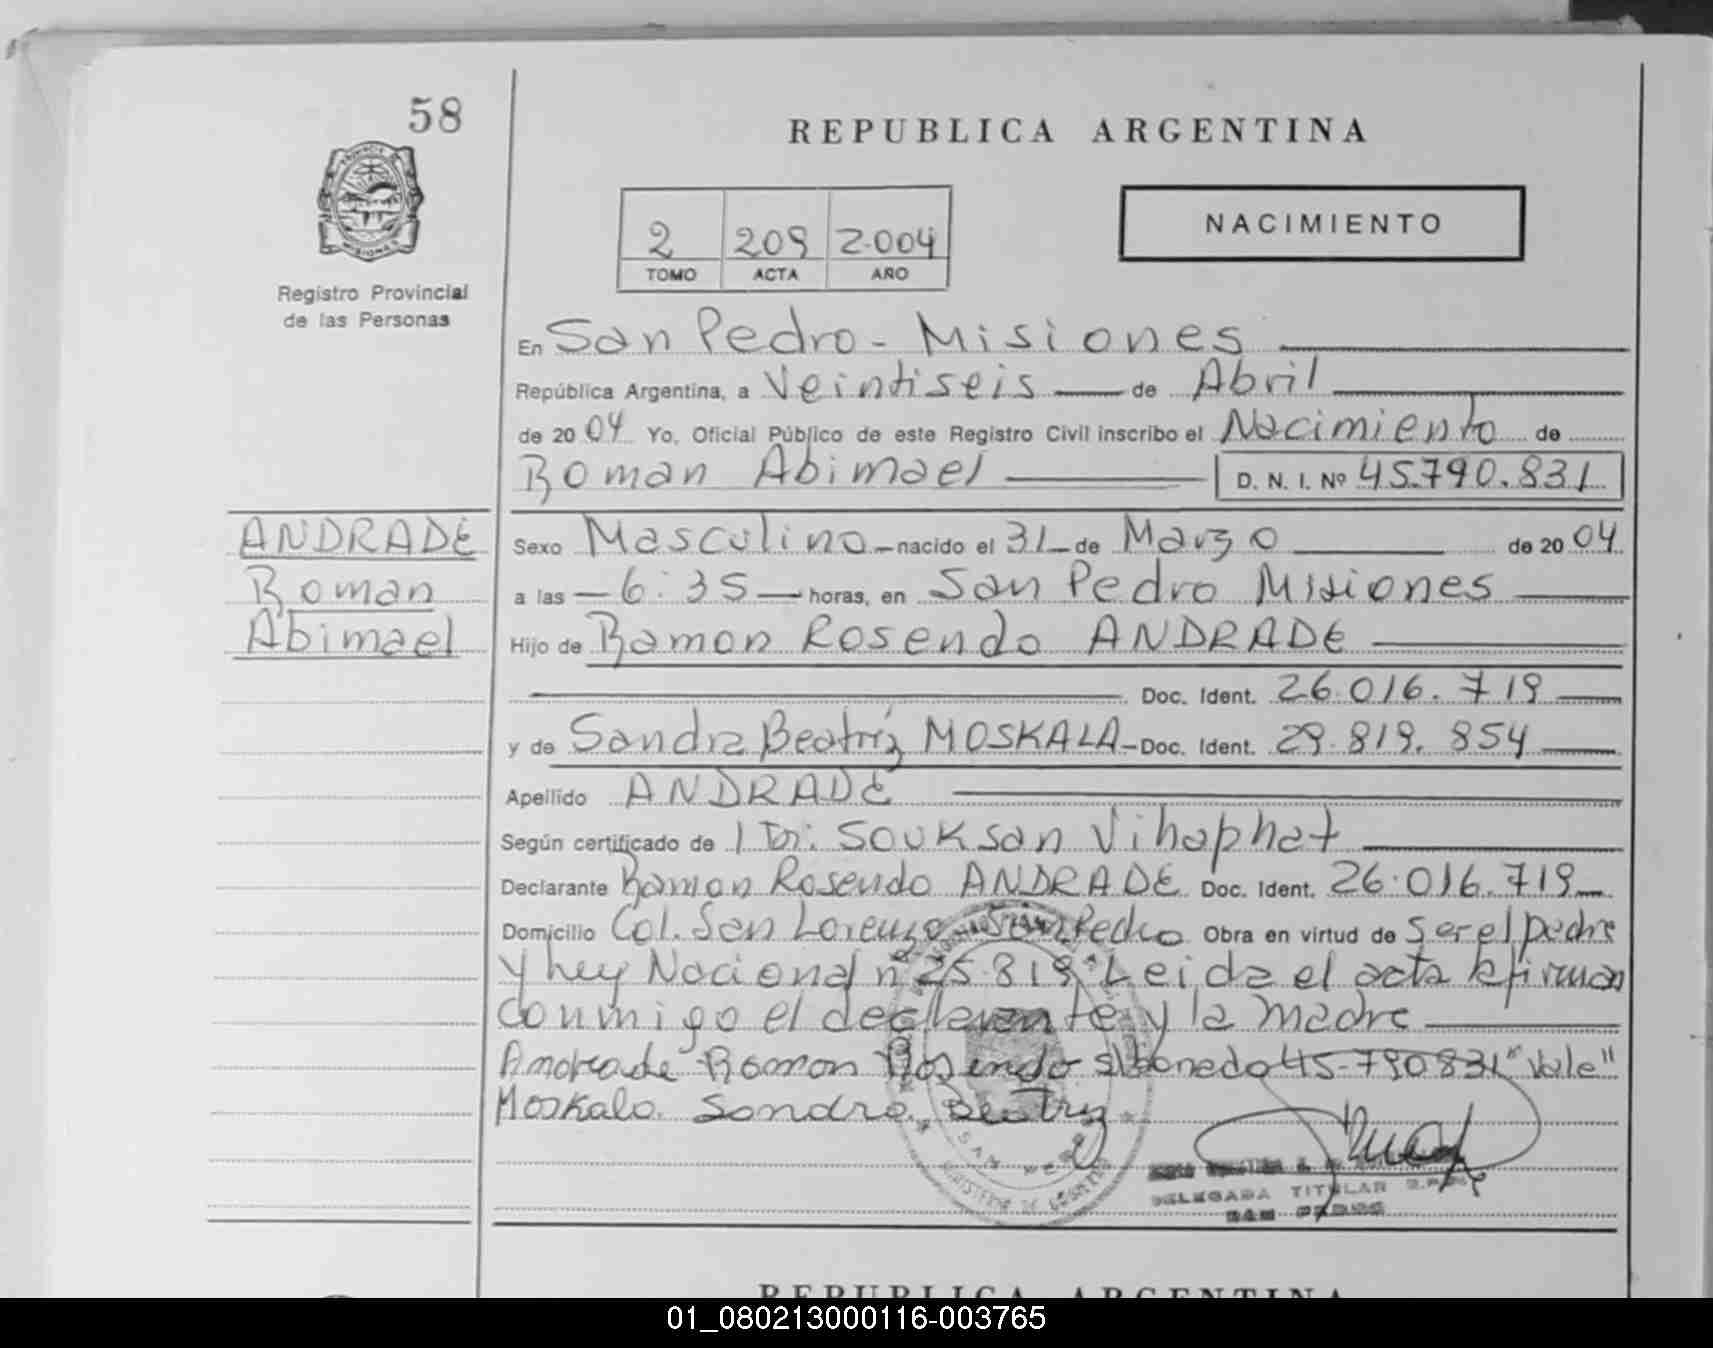 58
REPUBLICA ARGENTINA
2 209 2.004
TOMO ACTA AÑO
NACIMIENTO
Registro Provincial
de las Personas
En San Pedro - Misiones
República Argentina, a Veintiseis de Abril
de 20 04 Yo, Oficial Público de este Registro Civil inscribo el Nacimiento de
Roman Abimael D. N. I. Nº 45.790.831
ANDRADE
Roman
Abimael
Sexo Masculino - nacido el 31 de Marzo de 20 04
a las - 6:35 - horas, en San Pedro Misiones
Hijo de Ramon Rosendo ANDRADE
Doc. Ident. 26.016.719
y de Sandra Beatríz MOSKALA - Doc. Ident. 29.819.854
Apellido ANDRADE
Según certificado de Dr: Souksan Vihaphat
Declarante Ramon Rosendo ANDRADE Doc. Ident. 26.016.719
Domicilio Col. San Lorenzo San Pedro Obra en virtud de Ser el padre
y ley Nacional nº 25.819 Leida el acta firman
conmigo el declarante y la madre
Andrade Ramon Rosendo 45-790831 "Vale"
Moskala Sandra Beatriz
SAN PEDRO
DELEGADA TITULAR
SAN PEDRO
REPUBLICA ARGENTINA
01_080213000116-003765